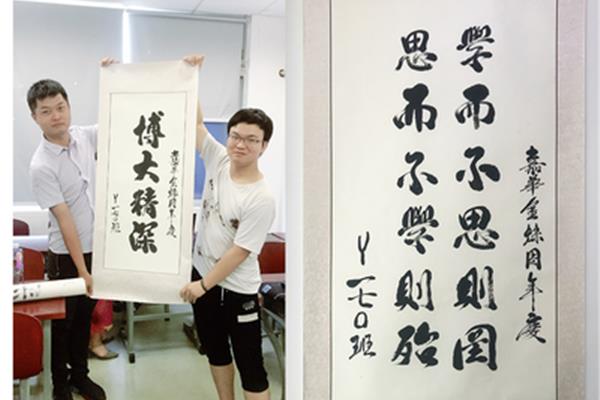 嘉華金絲周年度
博大精深
Y一七〇班
嘉華金絲周年度
學而不思則罔
思而不學則殆
Y一七〇班